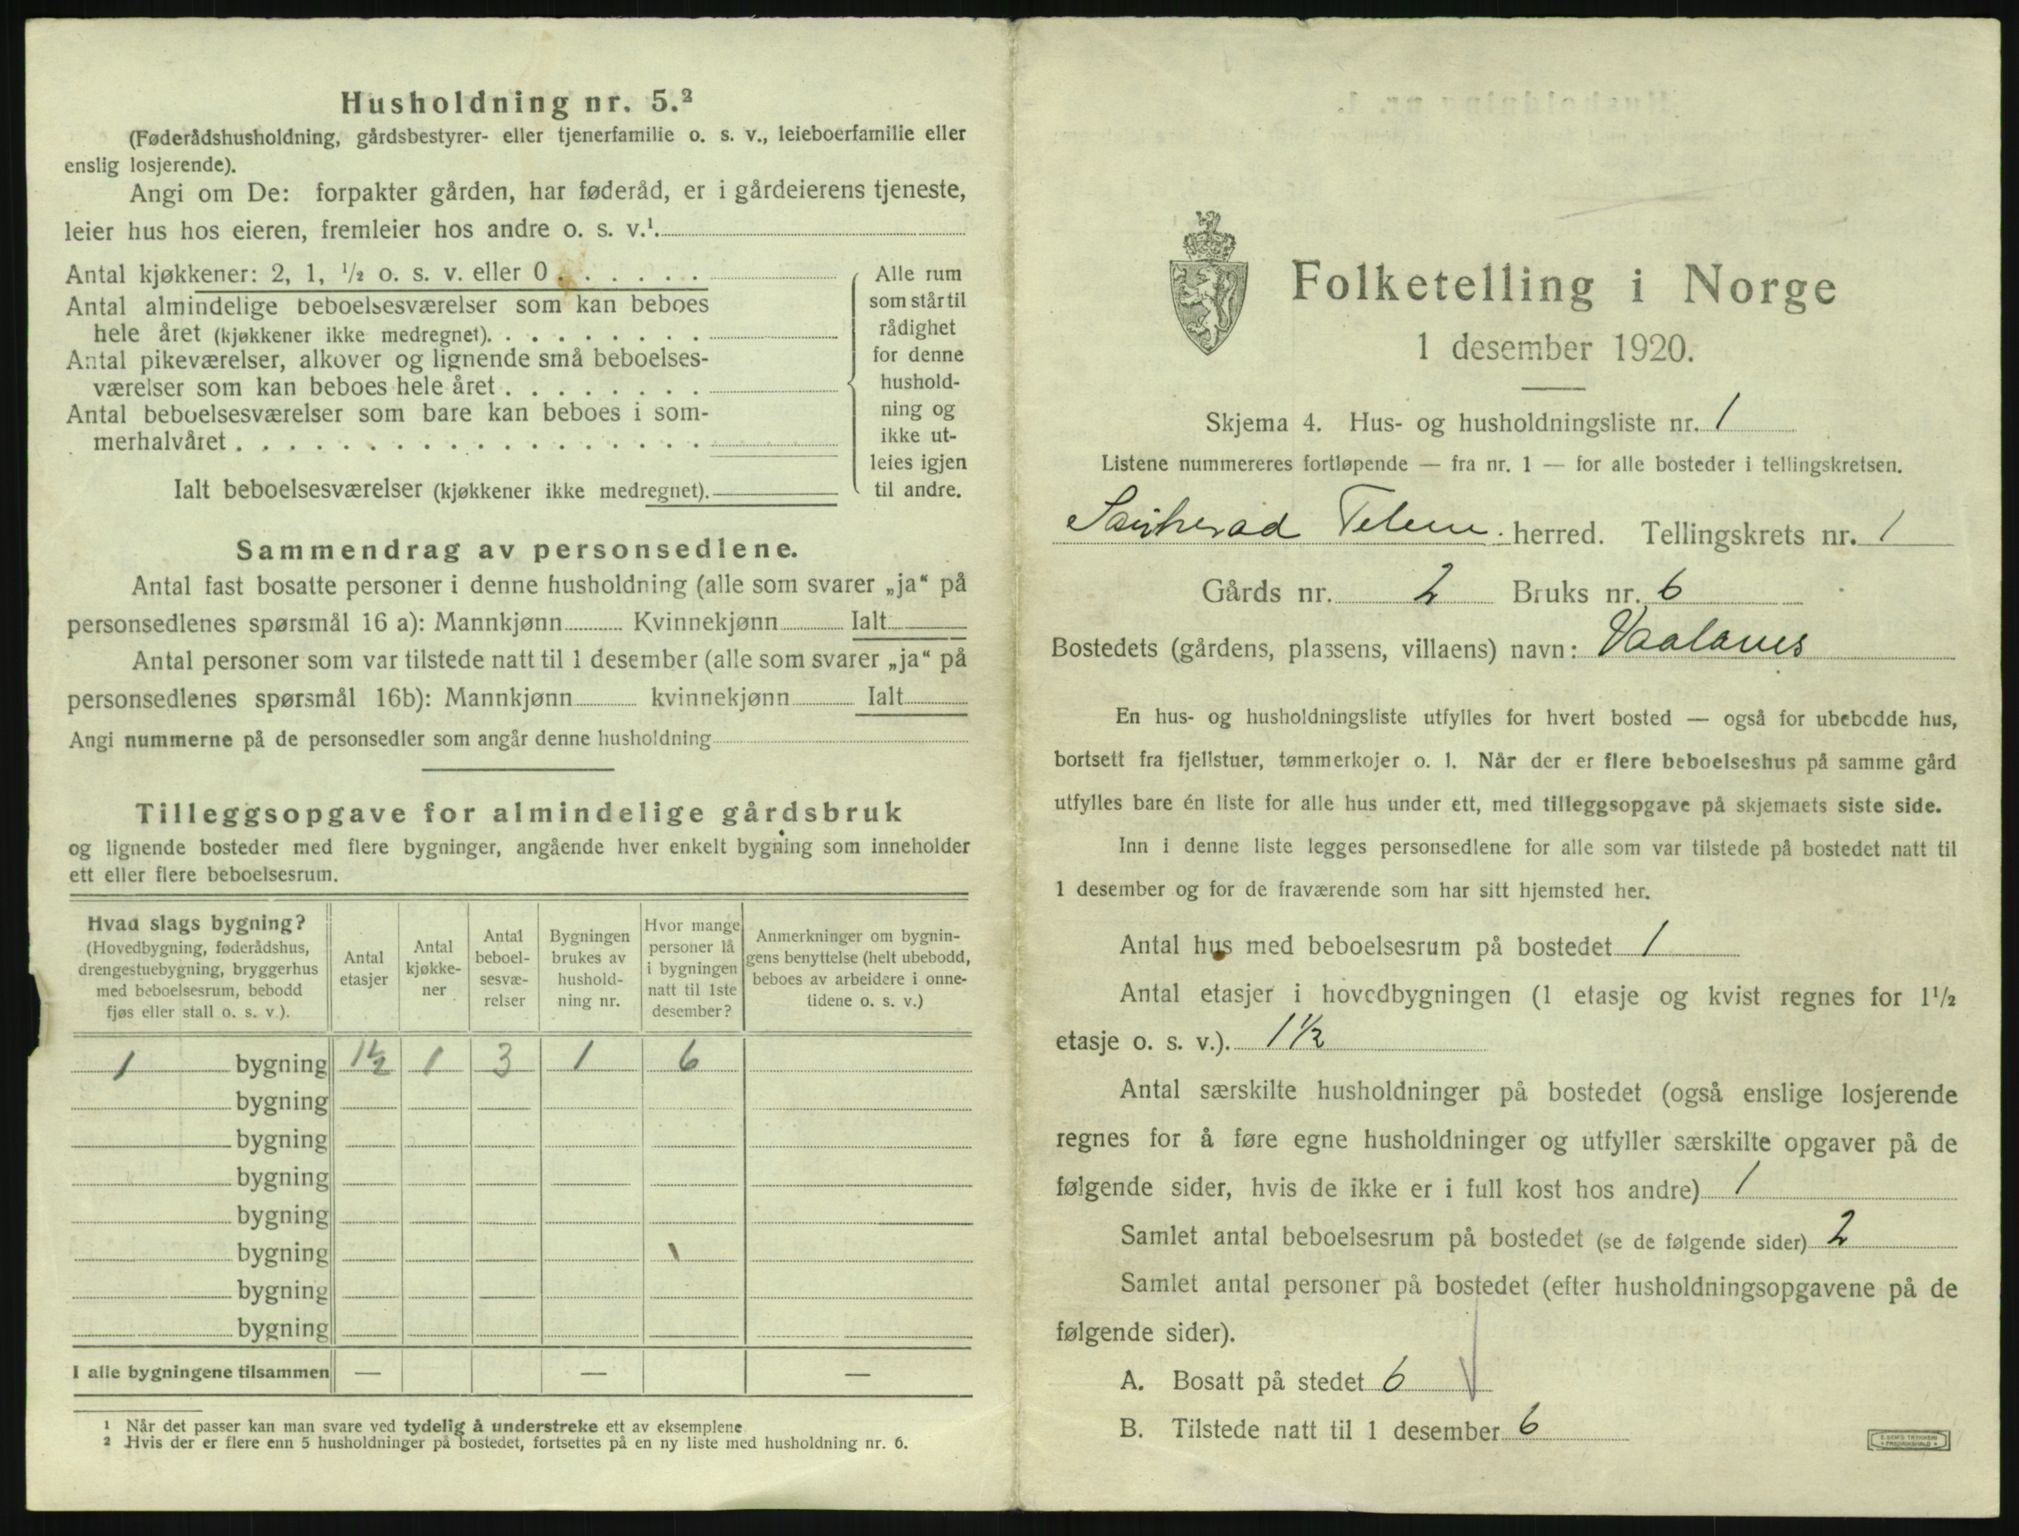 Husholdning nr. 5.²
(Føderådshusholdning, gårdsbestyrer- eller tjenerfamilie o. s. v., leieboerfamilie eller
enslig losjerende).
Angi om De: forpakter gården, har føderåd, er i gårdeierens tjeneste,
leier hus hos eieren, fremleier hos andre o. s. v.¹.
Antal kjøkkener: 2, 1, ¹/₂ o. s. v. eller 0
Antal almindelige beboelsesværelser som kan beboes
hele året (kjøkkener ikke medregnet).
Antal pikeværelser, alkover og lignende små beboelses-
værelser som kan beboes hele året
Antal beboelsesværelser som bare kan beboes i som-
merhalvåret
Ialt beboelsesværelser (kjøkkener ikke medregnet).
Alle rum
som står til
rådighet
for denne
hushold-
ning og
ikke ut-
leies igjen
til andre.
Sammendrag av personsedlene.
Antal fast bosatte personer i denne husholdning (alle som svarer „ja“ på
personsedlenes spørsmål 16 a): Mannkjønn Kvinnekjønn Ialt
Antal personer som var tilstede natt til 1 desember (alle som svarer „ja“ på
personsedlenes spørsmål 16b): Mannkjønn kvinnekjønn Ialt
Angi nummerne på de personsedler som angår denne husholdning
Tilleggsopgave for almindelige gårdsbruk
og lignende bosteder med flere bygninger, angående hver enkelt bygning som inneholder
ett eller flere beboelsesrum.
Hvad slags bygning?
(Hovedbygning, føderådshus,
drengestuebygning, bryggerhus
med beboelsesrum, bebodd
fjøs eller stall o. s. v.).
Antal
etasjer
Antal
kjøkke-
ner
Antal
beboel-
sesvæ-
relser
Bygningen
brukes av
hushold-
ning nr.
Hvor mange
personer lå
i bygningen
natt til 1ste
desember?
Anmerkninger om bygnin-
gens benyttelse (helt ubebodd,
beboes av arbeidere i onne-
tidene o. s. v.)
1 bygning 1½ 1 3 1 6
bygning
bygning
bygning
bygning
bygning
bygning
bygning
I alle bygningene tilsammen — — —
¹ Når det passer kan man svare ved tydelig å understreke ett av eksemplene
² Hvis der er flere enn 5 husholdninger på bostedet, fortsettes på en ny liste med husholdning nr. 6.
Folketelling i Norge
1 desember 1920.
Skjema 4. Hus- og husholdningsliste nr. 1
Listene nummereres fortløpende — fra nr. 1 — for alle bosteder i tellingskretsen.
Sauherad Telem. herred. Tellingskrets nr. 1
Gårds nr. 2 Bruks nr. 6
Bostedets (gårdens, plassens, villaens) navn:
En hus- og husholdningsliste utfylles for hvert bosted — også for ubebodde hus,
bortsett fra fjellstuer, tømmerkojer o. l. Når der er flere beboelseshus på samme gård
utfylles bare én liste for alle hus under ett, med tilleggsopgave på skjemaets siste side.
Inn i denne liste legges personsedlene for alle som var tilstede på bostedet natt til
1 desember og for de fraværende som har sitt hjemsted her.
Antal hus med beboelsesrum på bostedet 1
Antal etasjer i hovedbygningen (1 etasje og kvist regnes for 1¹/₂
etasje o. s. v.). 1½
Antal særskilte husholdninger på bostedet (også enslige losjerende
regnes for å føre egne husholdninger og utfyller særskilte opgaver på de
følgende sider, hvis de ikke er i full kost hos andre) 1
Samlet antal beboelsesrum på bostedet (se de følgende sider) 2
Samlet antal personer på bostedet (efter husholdningsopgavene på de
følgende sider).
A. Bosatt på stedet 6
B. Tilstede natt til 1 desember 6